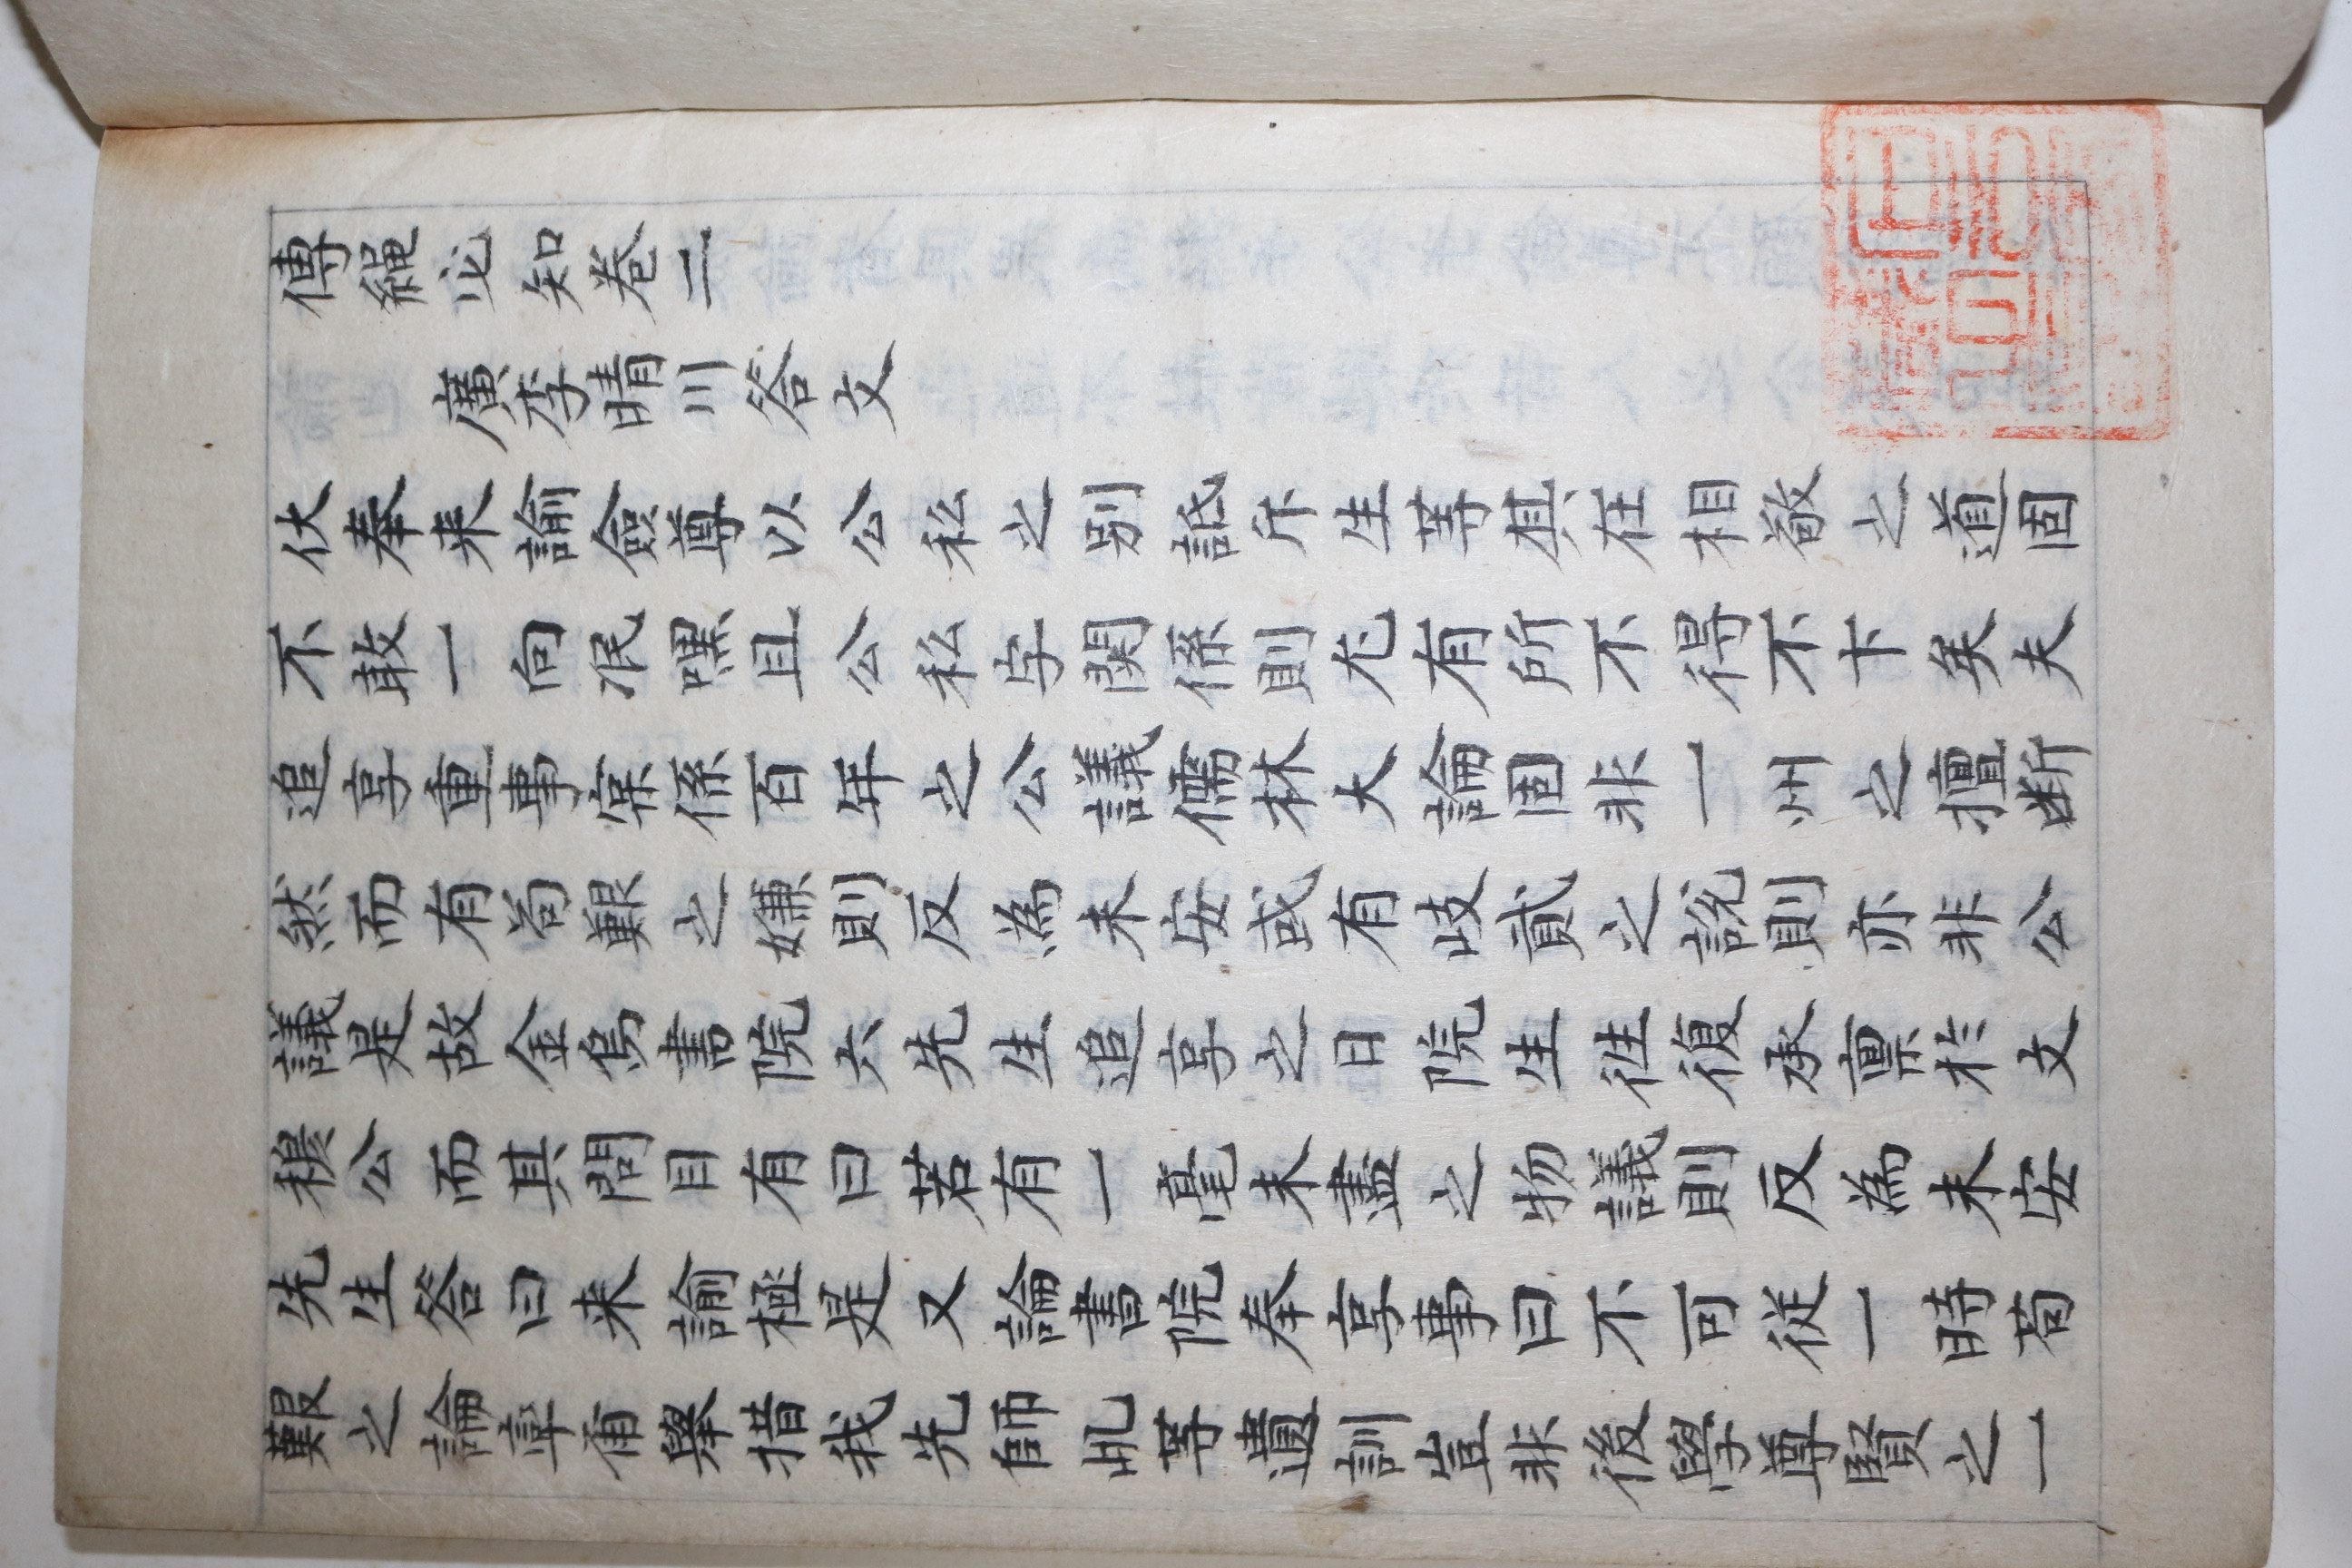 傳繩必知卷二
廣李晴川答文
伏奉来諭僉尊以公私之别詆斥生等其在相敬之道固
不敢一向泯嘿且公私字関係則尤有所不得不卞矣夫
追享重事寀係百年之公議儒林大論固非一州之擅断
然而有苟艱之嫌則反為未安或有歧貳之說則亦非公
議是故金烏書院六先生追享之日院生徃復承禀於文
穆公而其問目有曰若有一毫未盡之物議則反為未安
先生答曰来諭極是又論書院奉享事曰不可従一時苟
艱之論率甬舉措我先師此等遺訓豈非後學尊賢之一